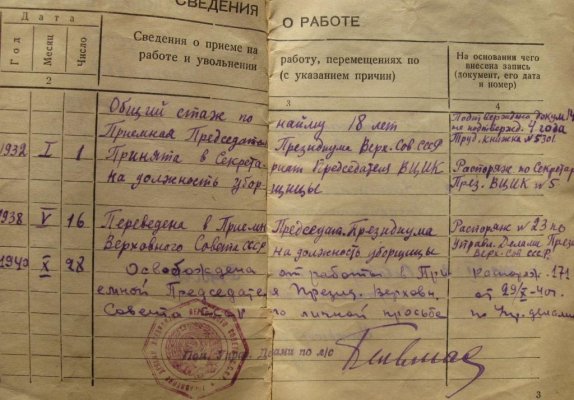 СВЕДЕНИЯ О РАБОТЕ
Дата
Год Месяц Число
Сведения о приеме на работу, перемещениях по
работе и увольнении (с указанием причин)
На основании чего
внесена запись
(документ, его дата
и номер)
2 3 4
Общий стаж по найму 18 лет
Подтверждено докум. 14
не подтвержд. 4 года
Труд. книжка №5301
Приемная Председателя Президиума Верх. Сов СССР
1932 I 1 Принята в Секретариат Председателя ВЦИК
на должность уборщицы
Распоряж. по Секретар
През. ВЦИК №5
1938 V 16 Переведена в Приемн Председат. Президиума
Верховного Совета СССР на должность уборщицы
Распоряж №23 по
Управл. Делами През
Верх-Сов СССР.
1940 X 28 Освобождена от работы в При
емной Председателя Презид. Верховн.
Совета личной просьбе
Распоряж. 171
от 29/X-40г.
по Упр. делами
3